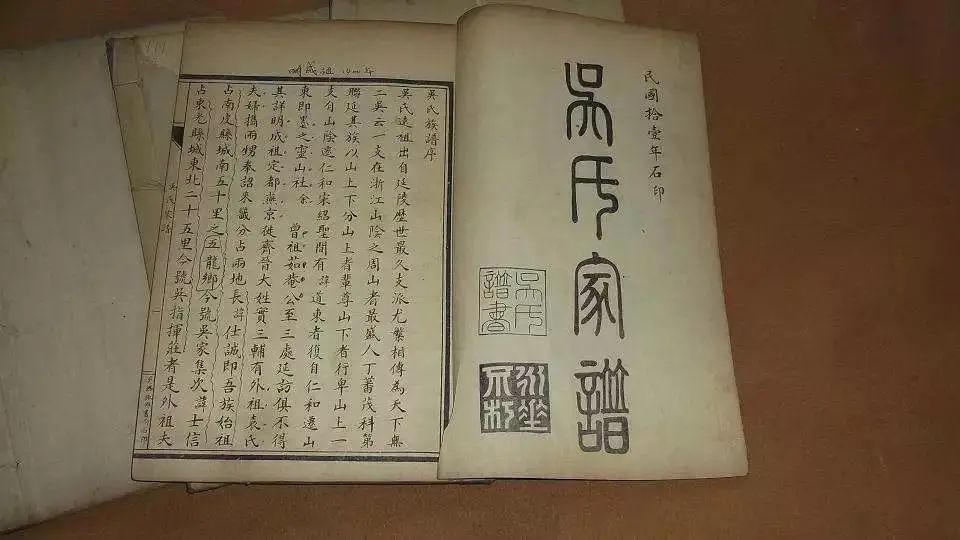 民國拾壹年石印
吳氏家譜
吳氏譜書
明成祖 1400年
吳氏族譜序
吳氏遠祖出自延陵歷世最久支派尤繁相傳為天下無
二吳云一支在浙江山陰之周山者最盛人丁蕃茂科第
聯延其族以山上下分山上者輩尊山下者行卑山上一
支自山陰遷仁和宋紹聖間有諱道東者復自仁和遷山
東即墨之靈山社余曾祖茹菴公至三處延訪俱不得
其詳明成祖定都燕京徙齊晉大姓實三輔有外祖袁氏
夫婦攜兩甥奉詔來議分占兩地長諱仕誠即吾族始祖
占南皮縣城南五十里之五龍鄉今號吳家集次諱士信
占東光縣城東北二十五里今號吳指揮莊者是外祖夫
吳氏家譜